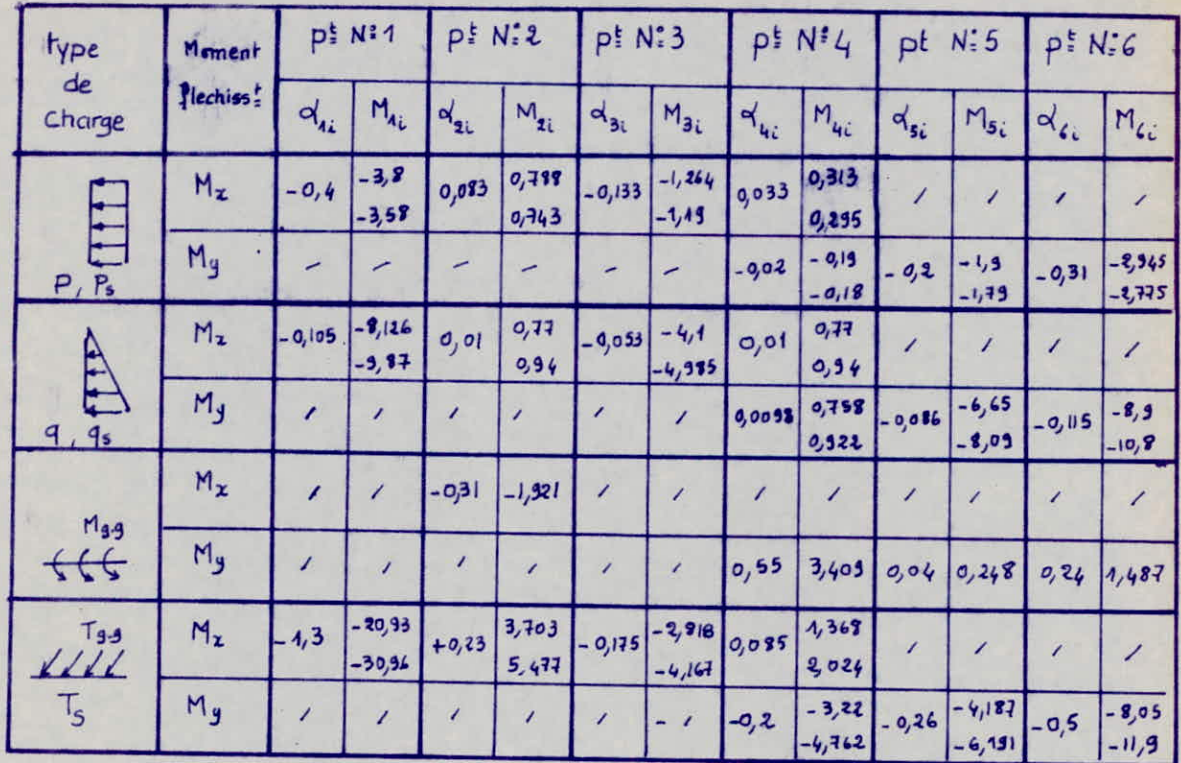 type de charge | Moment flechiss.t | p.t N°1 | p.t N°2 | p.t N°3 | p.t N°4 | pt N°5 | p.t N°6
α1i | M1i | α2i | M2i | α3i | M3i | α4i | M4i | α5i | M5i | α6i | M6i
P, Ps | Mx | -0,4 | -3,8 -3,58 | 0,083 | 0,788 0,743 | -0,133 | -1,264 -1,19 | 0,033 | 0,313 0,295 | / | / | / | /
My | / | / | / | / | / | / | -0,02 | -0,19 -0,18 | -0,2 | -1,9 -1,79 | -0,31 | -2,945 -2,775
q, qs | Mx | -0,105 | -8,126 -9,87 | 0,01 | 0,77 0,94 | -0,053 | -4,1 -4,985 | 0,01 | 0,77 0,94 | / | / | / | /
My | / | / | / | / | / | / | 0,0098 | 0,758 0,922 | -0,086 | -6,65 -8,09 | -0,115 | -8,9 -10,8
Mg-g | Mx | / | / | -0,31 | -1,921 | / | / | / | / | / | / | / | /
My | / | / | / | / | / | / | 0,55 | 3,409 | 0,04 | 0,248 | 0,24 | 1,487
Tg-g Ts | Mx | -1,3 | -20,93 -30,96 | +0,23 | 3,703 5,477 | -0,175 | -2,818 -4,167 | 0,085 | 1,368 2,024 | / | / | / | /
My | / | / | / | / | / | - / | -0,2 | -3,22 -4,762 | -0,26 | -4,187 -6,191 | -0,5 | -8,05 -11,9